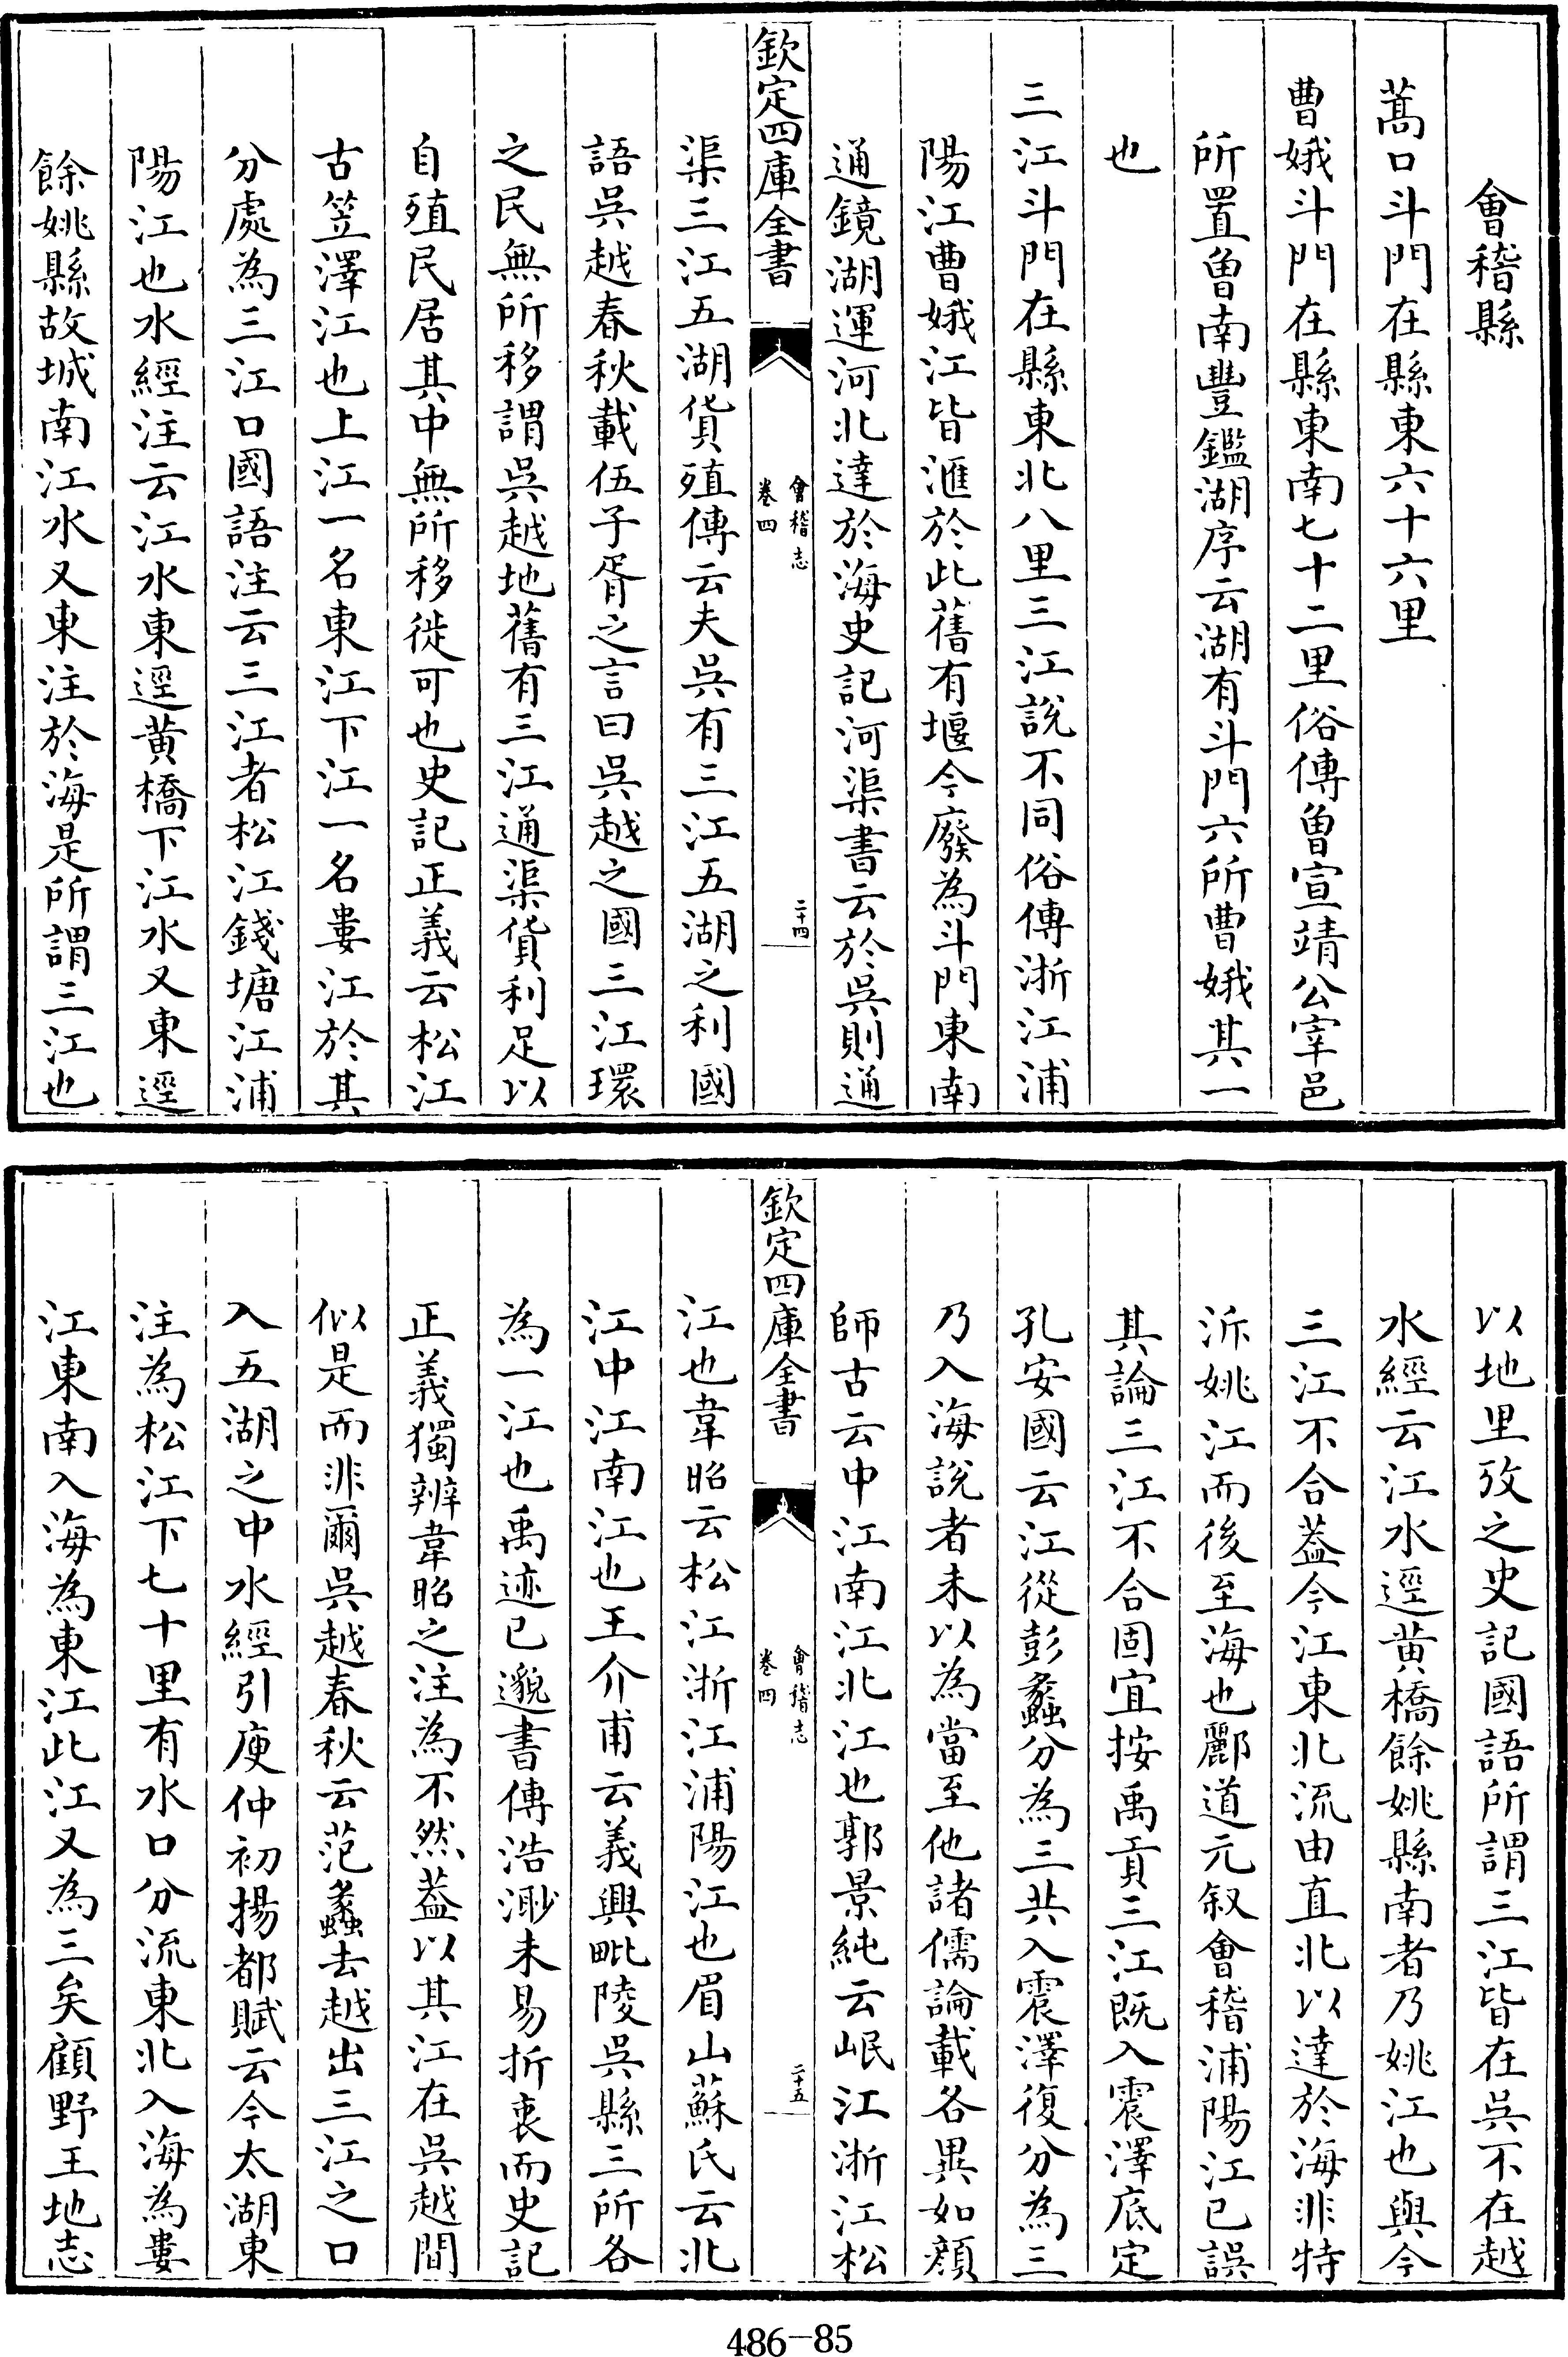 會稽縣
蒿口斗門在縣東六十六里
曹娥斗門在縣東南七十二里俗傳曾宣靖公宰邑
所置曾南豐鑑湖序云湖有斗門六所曹娥其一
也
三江斗門在縣東北八里三江說不同俗傳浙江浦
陽江曹娥江皆滙於此舊有堰今廢為斗門東南
通鏡湖運河北達於海史記河渠書云於吳則通
欽定四庫全書
會稽志
卷四
二十四
渠三江五湖貨殖傳云夫吳有三江五湖之利國
語吳越春秋載伍子胥之言曰吳越之國三江環
之民無所移謂吳越地舊有三江通渠貨利足以
自殖民居其中無所移徙可也史記正義云松江
古笠澤江也上江一名東江下江一名婁江於其
分處為三江口國語注云三江者松江錢塘江浦
陽江也水經注云江水東逕黃橋下江水又東逕
餘姚縣故城南江水又東注於海是所謂三江也
以地里攷之史記國語所謂三江皆在吳不在越
水經云江水逕黃橋餘姚縣南者乃姚江也與今
三江不合葢今江東北流由直北以達於海非特
泝姚江而後至海也酈道元叙會稽浦陽江已誤
其論三江不合固宜按禹貢三江既入震澤底定
孔安國云江從彭蠡分為三共入震澤復分為三
乃入海說者未以為當至他諸儒論載各異如顏
師古云中江南江北江也郭景純云岷江浙江松
欽定四庫全書
會稽志
卷四
二十五
江也韋昭云松江浙江浦陽江也眉山蘇氏云北
江中江南江也王介甫云義興毗陵吳縣三所各
為一江也禹迹已邈書傳浩渺未易折衷而史記
正義獨辨韋昭之注為不然葢以其江在吳越間
似是而非爾吳越春秋云范蠡去越出三江之口
入五湖之中水經引庾仲初揚都賦云今太湖東
注為松江下七十里有水口分流東北入海為婁
江東南入海為東江此江又為三矣顧野王地志
486-85